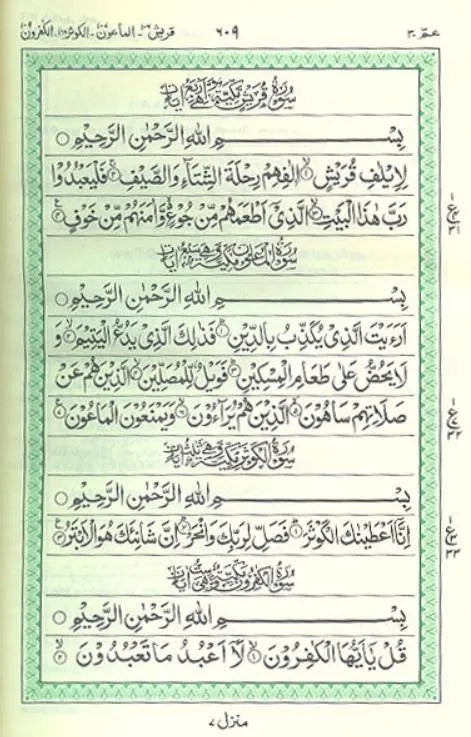 عمّ ٣٠ ٦٠٩ قريش ١٠٦ - الماعون ١٠٧ - الكوثر ١٠٨ - الكفرون ١٠٩
سُوْرَةُ قُرَيْشٍ مَّكِّيَّةٌ وَّهِيَ اَرْبَعُ اٰيَاتٍ
بِسْمِ اللهِ الرَّحْمٰنِ الرَّحِيْمِ ○
لِاِيْلٰفِ قُرَيْشٍ ۙ١ اٖلٰفِهِمْ رِحْلَةَ الشِّتَآءِ وَالصَّيْفِ ۚ٢ فَلْيَعْبُدُوْا
رَبَّ هٰذَا الْبَيْتِ ۙ٣ الَّذِيْٓ اَطْعَمَهُمْ مِّنْ جُوْعٍ ۙ وَّاٰمَنَهُمْ مِّنْ خَوْفٍ ۧ٤
سُوْرَةُ الْمَاعُوْنِ مَكِّيَّةٌ وَّهِيَ سَبْعُ اٰيَاتٍ
بِسْمِ اللهِ الرَّحْمٰنِ الرَّحِيْمِ ○
اَرَءَيْتَ الَّذِيْ يُكَذِّبُ بِالدِّيْنِ ۗ١ فَذٰلِكَ الَّذِيْ يَدُعُّ الْيَتِيْمَ ۙ٢ وَ
لَا يَحُضُّ عَلٰى طَعَامِ الْمِسْكِيْنِ ۗ٣ فَوَيْلٌ لِّلْمُصَلِّيْنَ ۙ٤ الَّذِيْنَ هُمْ عَنْ
صَلَاتِهِمْ سَاهُوْنَ ۙ٥ الَّذِيْنَ هُمْ يُرَآءُوْنَ ۙ٦ وَيَمْنَعُوْنَ الْمَاعُوْنَ ۧ٧
سُوْرَةُ الْكَوْثَرِ مَكِّيَّةٌ وَّهِيَ ثَلٰثُ اٰيَاتٍ
بِسْمِ اللهِ الرَّحْمٰنِ الرَّحِيْمِ ○
اِنَّآ اَعْطَيْنٰكَ الْكَوْثَرَ ۗ١ فَصَلِّ لِرَبِّكَ وَانْحَرْ ۗ٢ اِنَّ شَانِئَكَ هُوَ الْاَبْتَرُ ۧ٣
سُوْرَةُ الْكٰفِرُوْنَ مَكِّيَّةٌ وَّهِيَ سِتُّ اٰيَاتٍ
بِسْمِ اللهِ الرَّحْمٰنِ الرَّحِيْمِ ○
قُلْ يٰٓاَيُّهَا الْكٰفِرُوْنَ ۙ١ لَآ اَعْبُدُ مَا تَعْبُدُوْنَ ۙ٢
منزل ٧